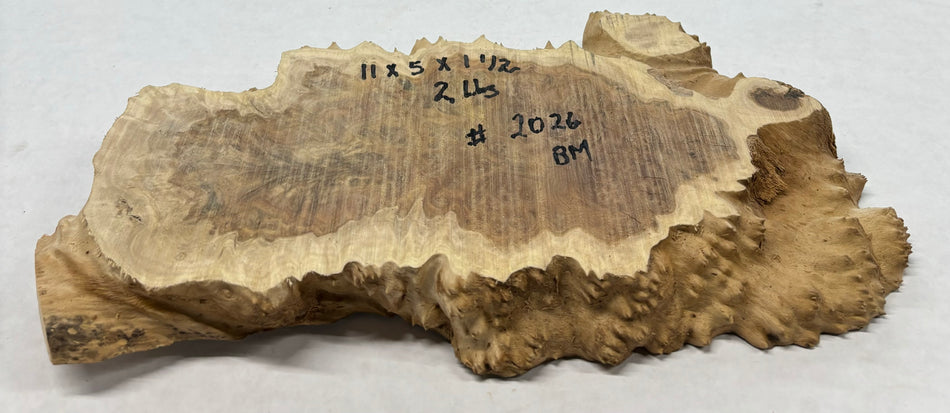 11 x 5 x 1 1/2
2 Lbs
# 2026
BM